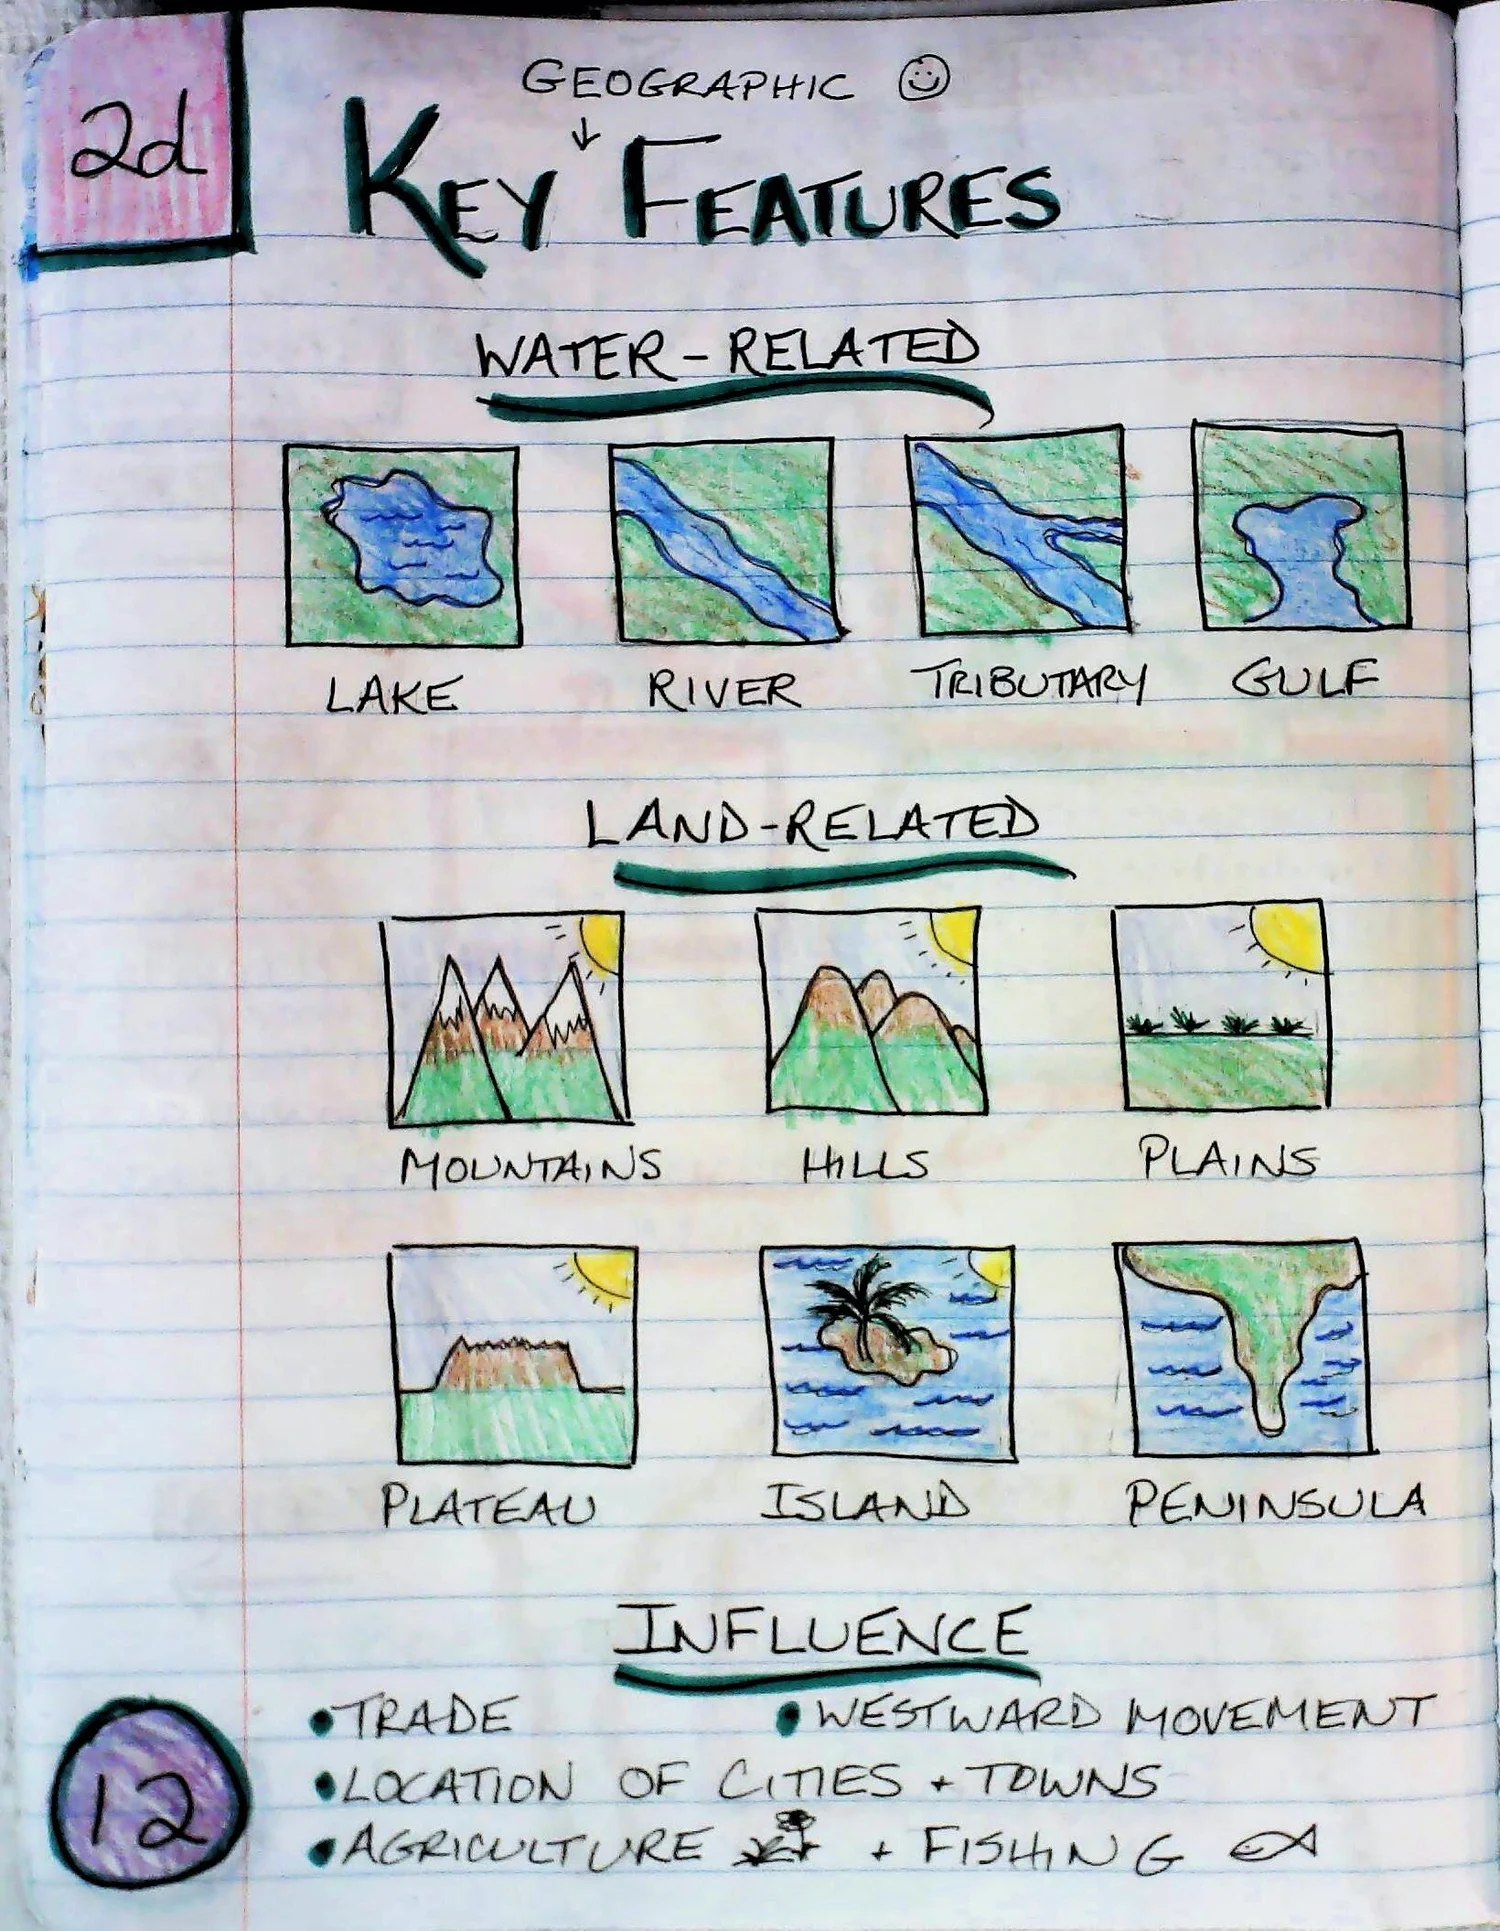 2d
GEOGRAPHIC
KEY FEATURES
WATER-RELATED
LAKE RIVER TRIBUTARY GULF
LAND-RELATED
MOUNTAINS HILLS PLAINS
PLATEAU ISLAND PENINSULA
INFLUENCE
• TRADE • WESTWARD MOVEMENT
• LOCATION OF CITIES + TOWNS
• AGRICULTURE + FISHING
12